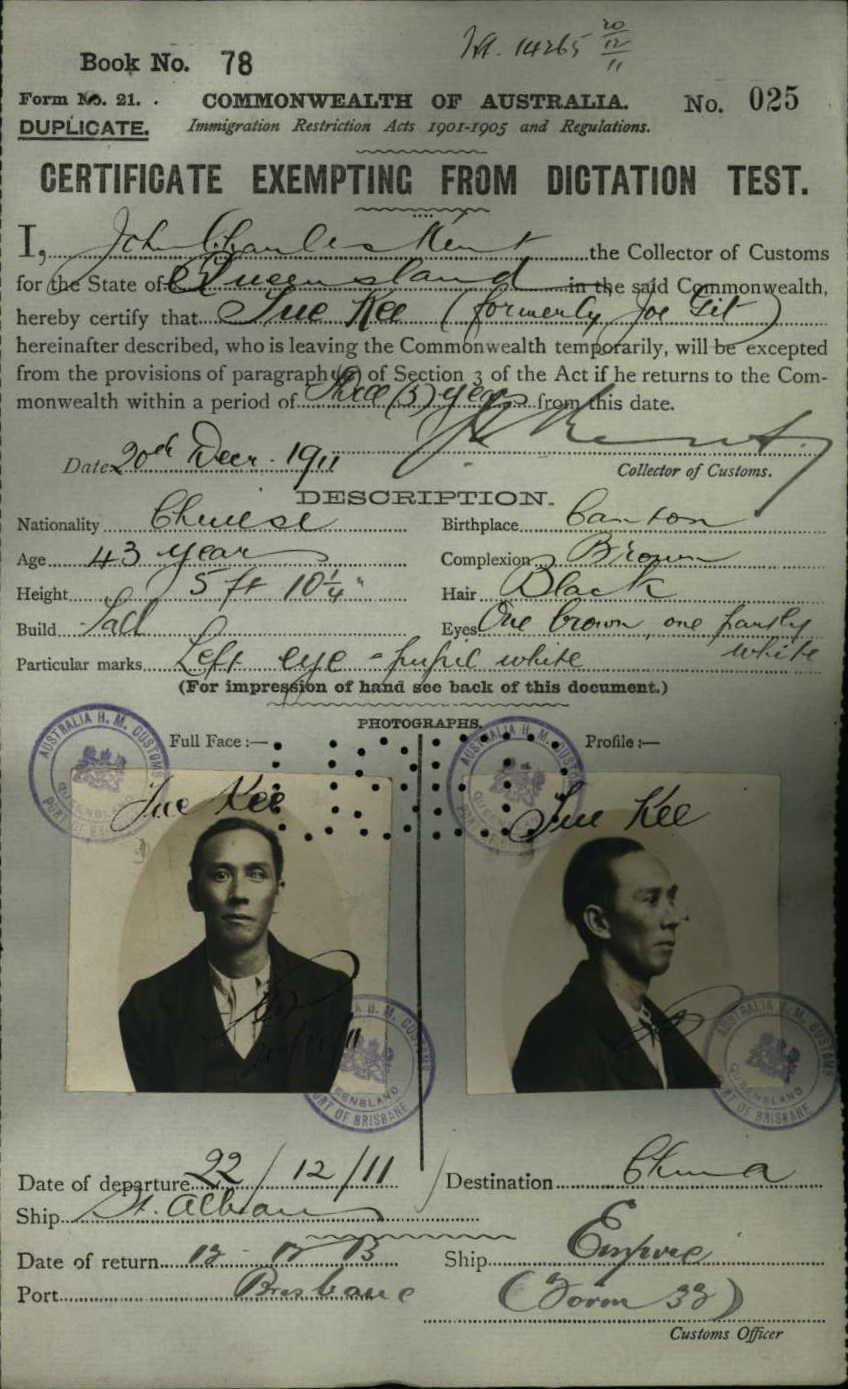 14265 20/12/11
Book No. 78
Form No. 21. COMMONWEALTH OF AUSTRALIA. No. 025
DUPLICATE. Immigration Restriction Acts 1901-1905 and Regulations.
CERTIFICATE EXEMPTING FROM DICTATION TEST.
I, John Charles Kent the Collector of Customs
for the State of Queensland in the said Commonwealth,
hereby certify that Sue Kee (formerly Joe Git)
hereinafter described, who is leaving the Commonwealth temporarily, will be excepted
from the provisions of paragraph (a) of Section 3 of the Act if he returns to the Com-
monwealth within a period of Three (3) years from this date.
Date 20th Decr. 1911
Collector of Customs.
DESCRIPTION.
Nationality Chinese Birthplace Canton
Age 43 years Complexion Brown
Height 5 ft 10 1/4" Hair Black
Build Tall Eyes One brown, one partly white
Particular marks Left eye - pupil white
(For impression of hand see back of this document.)
PHOTOGRAPHS.
Full Face:— Profile:—
AUSTRALIA H. M. CUSTOMS QUEENSLAND PORT OF BRISBANE
AUSTRALIA H. M. CUSTOMS QUEENSLAND PORT OF BRISBANE
Sue Kee Sue Kee
AUSTRALIA H. M. CUSTOMS QUEENSLAND PORT OF BRISBANE
AUSTRALIA H. M. CUSTOMS QUEENSLAND PORT OF BRISBANE
Date of departure 22/12/11 Destination China
Ship St. Albans
Date of return 12 - 12 13 Ship Empire
Port Brisbane (Form 32)
Customs Officer